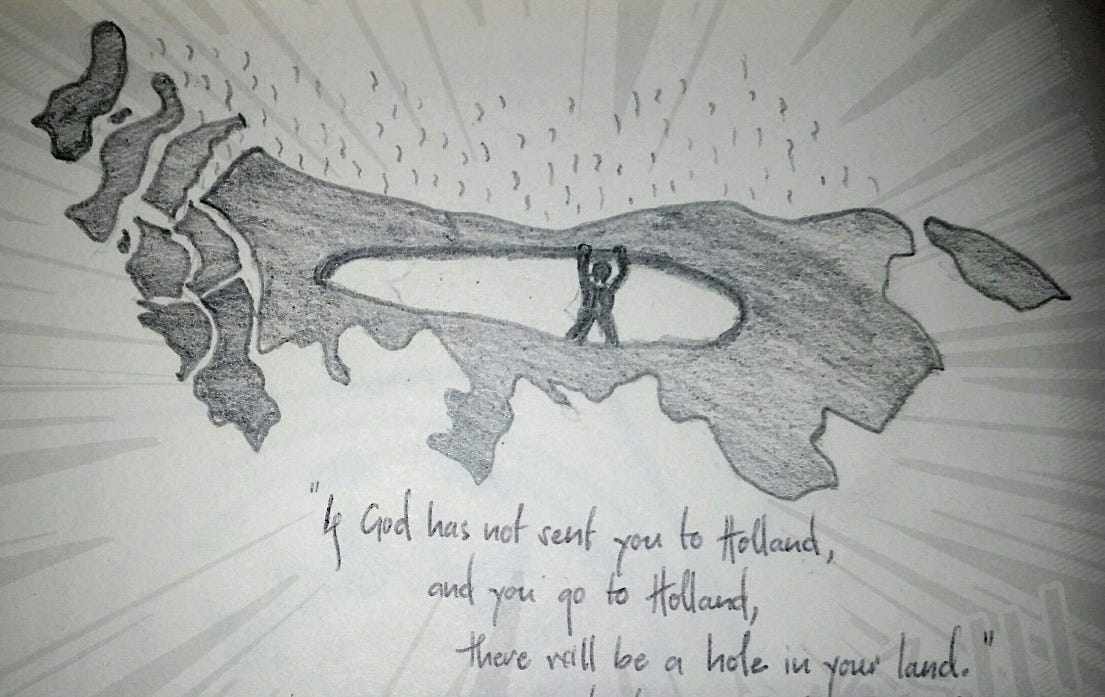 "If God has not sent you to Holland,
and you go to Holland,
there will be a hole in your land."